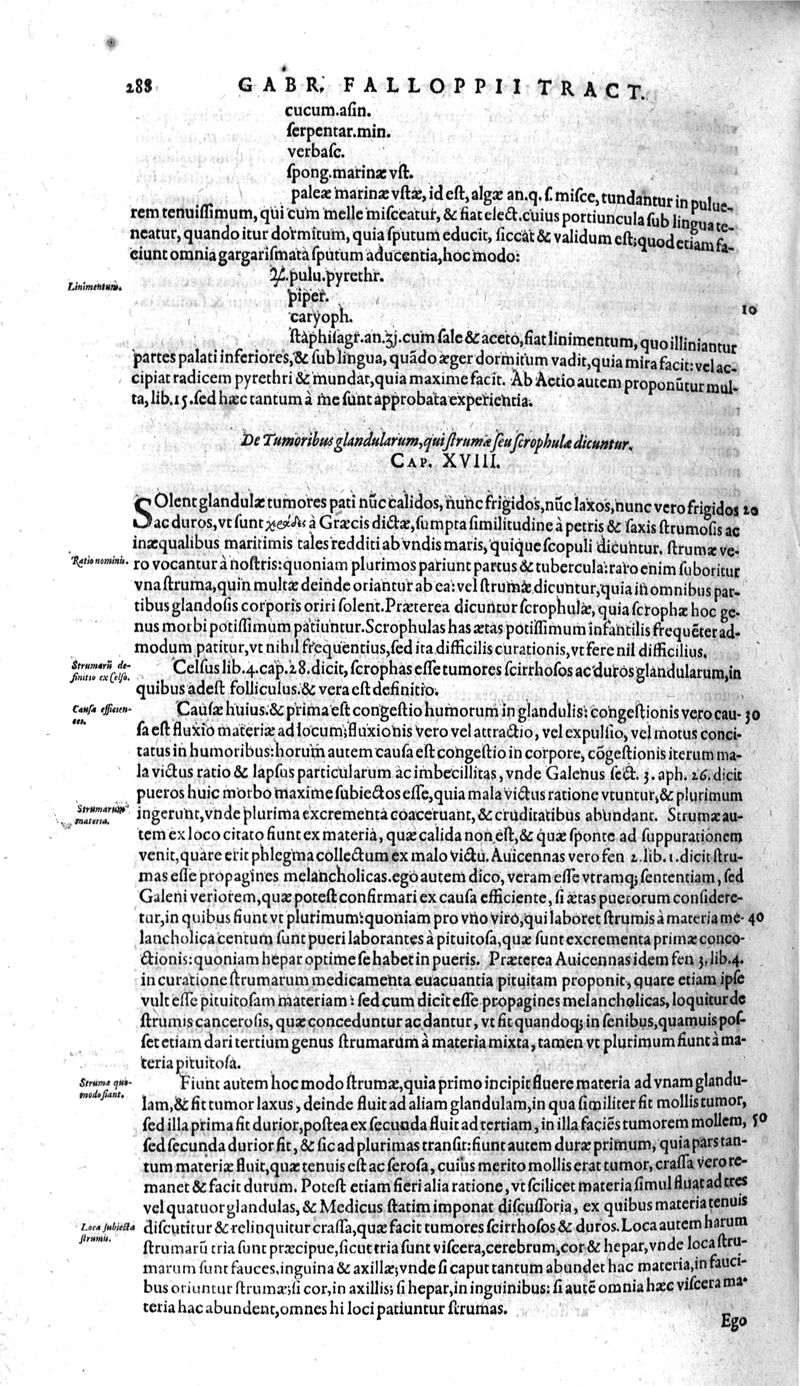 288 GABR. FALLOPPII TRACT.
cucum.aſin.
ſerpentar.min.
verbaſc.
ſpong.marinæ vſt.
paleæ marinæ vſtæ, id eſt, algæ an.q. ſ. miſce, tundantur in pulue-
rem tenuiſſimum, qui cum melle miſceatur, & fiat elect. cuius portiuncula ſub lingua te-
neatur, quando itur dormitum, quia ſputum educit, ſiccat & validum eſt; quod etiam fa-
ciunt omnia gargariſmata ſputum aducentia, hoc modo:
Linimentum.
℞. pulu. pyrethr.
piper.
10
caryoph.
ſtaphiſagr.an.ʒj.cum ſale & aceto, fiat linimentum, quo illiniantur
partes palati inferiores, & ſub lingua, quādo æger dormitum vadit, quia mira facit: vel ac-
cipiat radicem pyrethri & mundat, quia maxime facit. Ab Aetio autem proponūtur mul-
ta, lib.15. ſed hæc tantum à me ſunt approbata experientia.
De Tumoribus glandularum, qui ſtrumæ ſeu ſcrophulæ dicuntur.
CAP. XVIII.
SOlent glandulæ tumores pati nūc calidos, nunc frigidos, nūc laxos, nunc vero frigidos 20
ac duros, vt ſunt à Græcis dictæ, ſumpta ſimilitudine à petris & ſaxis ſtrumoſis ac
inæqualibus maritimis tales redditi ab vndis maris, quique ſcopuli dicuntur. ſtrumæ ve-
Ratio nominis.
ro vocantur à noſtris: quoniam plurimos pariunt partus & tubercula: raro enim ſuboritur
vna ſtruma, quin multæ deinde oriantur ab ea: vel ſtrumæ dicuntur, quia in omnibus par-
tibus glandoſis corporis oriri ſolent. Præterea dicuntur ſcrophulæ, quia ſcrophæ hoc ge-
nus morbi potiſſimum patiuntur. Scrophulas has ætas potiſſimum infantilis frequēter ad-
modum patitur, vt nihil frequentius, ſed ita difficilis curationis, vt fere nil difficilius.
Strumarū de-
finitio ex Celſo.
Celſus lib.4. cap.28. dicit, ſcrophas eſſe tumores ſcirrhoſos ac duros glandularum, in
quibus adeſt folliculus. & vera eſt definitio.
Cauſæ efficien-
tes.
Cauſæ huius. & prima eſt congeſtio humorum in glandulis: congeſtionis vero cau- 30
ſa eſt fluxio materiæ ad locum; fluxionis vero vel attractio, vel expulſio, vel motus conci-
tatus in humoribus: horum autem cauſa eſt congeſtio in corpore, cōgeſtionis iterum ma-
la victus ratio & lapſus particularum ac imbecillitas, vnde Galenus ſect. 3. aph. 26. dicit
pueros huic morbo maxime ſubiectos eſſe, quia mala victus ratione vtuntur, & plurimum
Strumarum
materia.
ingerunt, vnde plurima excrementa coaceruant, & cruditatibus abundant. Strumæ au-
tem ex loco citato fiunt ex materia, quæ calida non eſt, & quæ ſponte ad ſuppurationem
venit, quare erit phlegma collectum ex malo victu. Auicennas vero fen 2. lib. 1. dicit ſtru-
mas eſſe propagines melancholicas. ego autem dico, veram eſſe vtramq; ſententiam, ſed
Galeni veriorem, quæ poteſt confirmari ex cauſa efficiente, ſi ætas puerorum conſidere-
tur, in quibus fiunt vt plurimum: quoniam pro vno viro, qui laboret ſtrumis à materia me- 40
lancholica centum ſunt pueri laborantes à pituitoſa, quæ ſunt excrementa primæ conco-
ctionis: quoniam hepar optime ſe habet in pueris. Præterea Auicennas idem fen 3. lib.4.
in curatione ſtrumarum medicamenta euacuantia pituitam proponit, quare etiam ipſe
vult eſſe pituitoſam materiam: ſed cum dicit eſſe propagines melancholicas, loquitur de
ſtrumis canceroſis, quæ conceduntur ac dantur, vt fit quandoq; in ſenibus, quamuis poſ-
ſet etiam dari tertium genus ſtrumarum à materia mixta, tamen vt plurimum fiunt à ma-
teria pituitoſa.
Struma quo-
modo fiant.
Fiunt autem hoc modo ſtrumæ, quia primo incipit fluere materia ad vnam glandu-
lam, & fit tumor laxus, deinde fluit ad aliam glandulam, in qua ſimiliter fit mollis tumor,
ſed illa prima fit durior, poſtea ex ſecunda fluit ad tertiam, in illa faciēs tumorem mollem, 50
ſed ſecunda durior fit, & ſic ad plurimas tranſit: fiunt autem duræ primum, quia pars tan-
tum materiæ fluit, quæ tenuis eſt ac ſeroſa, cuius merito mollis erat tumor, craſſa vero re-
manet & facit durum. Poteſt etiam fieri alia ratione, vt ſcilicet materia ſimul fluat ad tres
vel quatuor glandulas, & Medicus ſtatim imponat diſcuſſoria, ex quibus materia tenuis
Loca ſubiecta
ſtrumis.
diſcutitur & relinquitur craſſa, quæ facit tumores ſcirrhoſos & duros. Loca autem harum
ſtrumarū tria ſunt præcipue, ſicut tria ſunt viſcera, cerebrum, cor & hepar, vnde loca ſtru-
marum ſunt fauces, inguina & axillæ; vnde ſi caput tantum abundet hac materia, in fauci-
bus oriuntur ſtrumæ; ſi cor, in axillis; ſi hepar, in inguinibus: ſi autē omnia hæc viſcera ma-
teria hac abundent, omnes hi loci patiuntur ſtrumas.
Ego